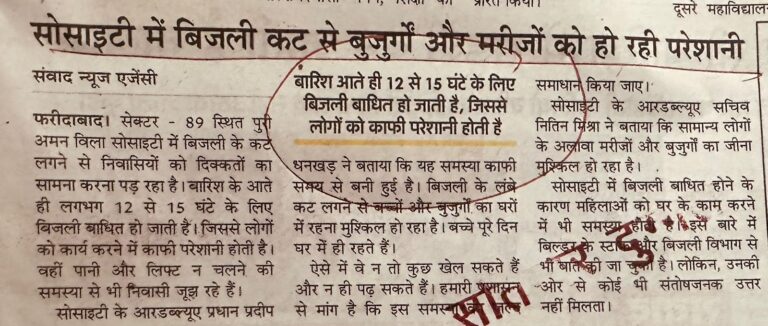 दूसरे महाविद्यालय
सोसाइटी में बिजली कट से बुजुर्गों और मरीजों को हो रही परेशानी
संवाद न्यूज एजेंसी
फरीदाबाद। सेक्टर - 89 स्थित पुरी
अमन विला सोसाइटी में बिजली के कट
लगने से निवासियों को दिक्कतों का
सामना करना पड़ रहा है। बारिश के आते
ही लगभग 12 से 15 घंटे के लिए
बिजली बाधित हो जाती है। जिससे लोगों
को कार्य करने में काफी परेशानी होती है।
वहीं पानी और लिफ्ट न चलने की
समस्या से भी निवासी जूझ रहे हैं।
सोसाइटी के आरडब्ल्यूए प्रधान प्रदीप
बारिश आते ही 12 से 15 घंटे के लिए
बिजली बाधित हो जाती है, जिससे
लोगों को काफी परेशानी होती है
धनखड़ ने बताया कि यह समस्या काफी
समय से बनी हुई है। बिजली के लंबे
कट लगने से बच्चों और बुजुर्गों का घरों
में रहना मुश्किल हो रहा है। बच्चे पूरे दिन
घर में ही रहते हैं।
ऐसे में वे न तो कुछ खेल सकते हैं
और न ही पढ़ सकते हैं। हमारी प्रशासन
से मांग है कि इस समस्या का जल्द
समाधान किया जाए।
सोसाइटी के आरडब्ल्यूए सचिव
नितिन मिश्रा ने बताया कि सामान्य लोगों
के अलावा मरीजों और बुजुर्गों का जीना
मुश्किल हो रहा है।
सोसाइटी में बिजली बाधित होने के
कारण महिलाओं को घर के काम करने
में भी समस्या होती है। इस बारे में
बिल्डर के स्टाफ और बिजली विभाग से
भी बात की जा चुकी है। लेकिन, उनकी
ओर से कोई भी संतोषजनक उत्तर
नहीं मिलता।